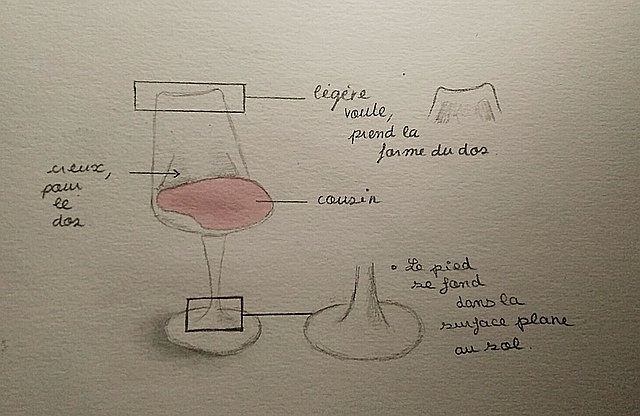 légère
voute,
prend la
forme du dos.
creux,
pour
le
dos
cousin
• Le pied
se fond
dans la
surface plane
au sol.